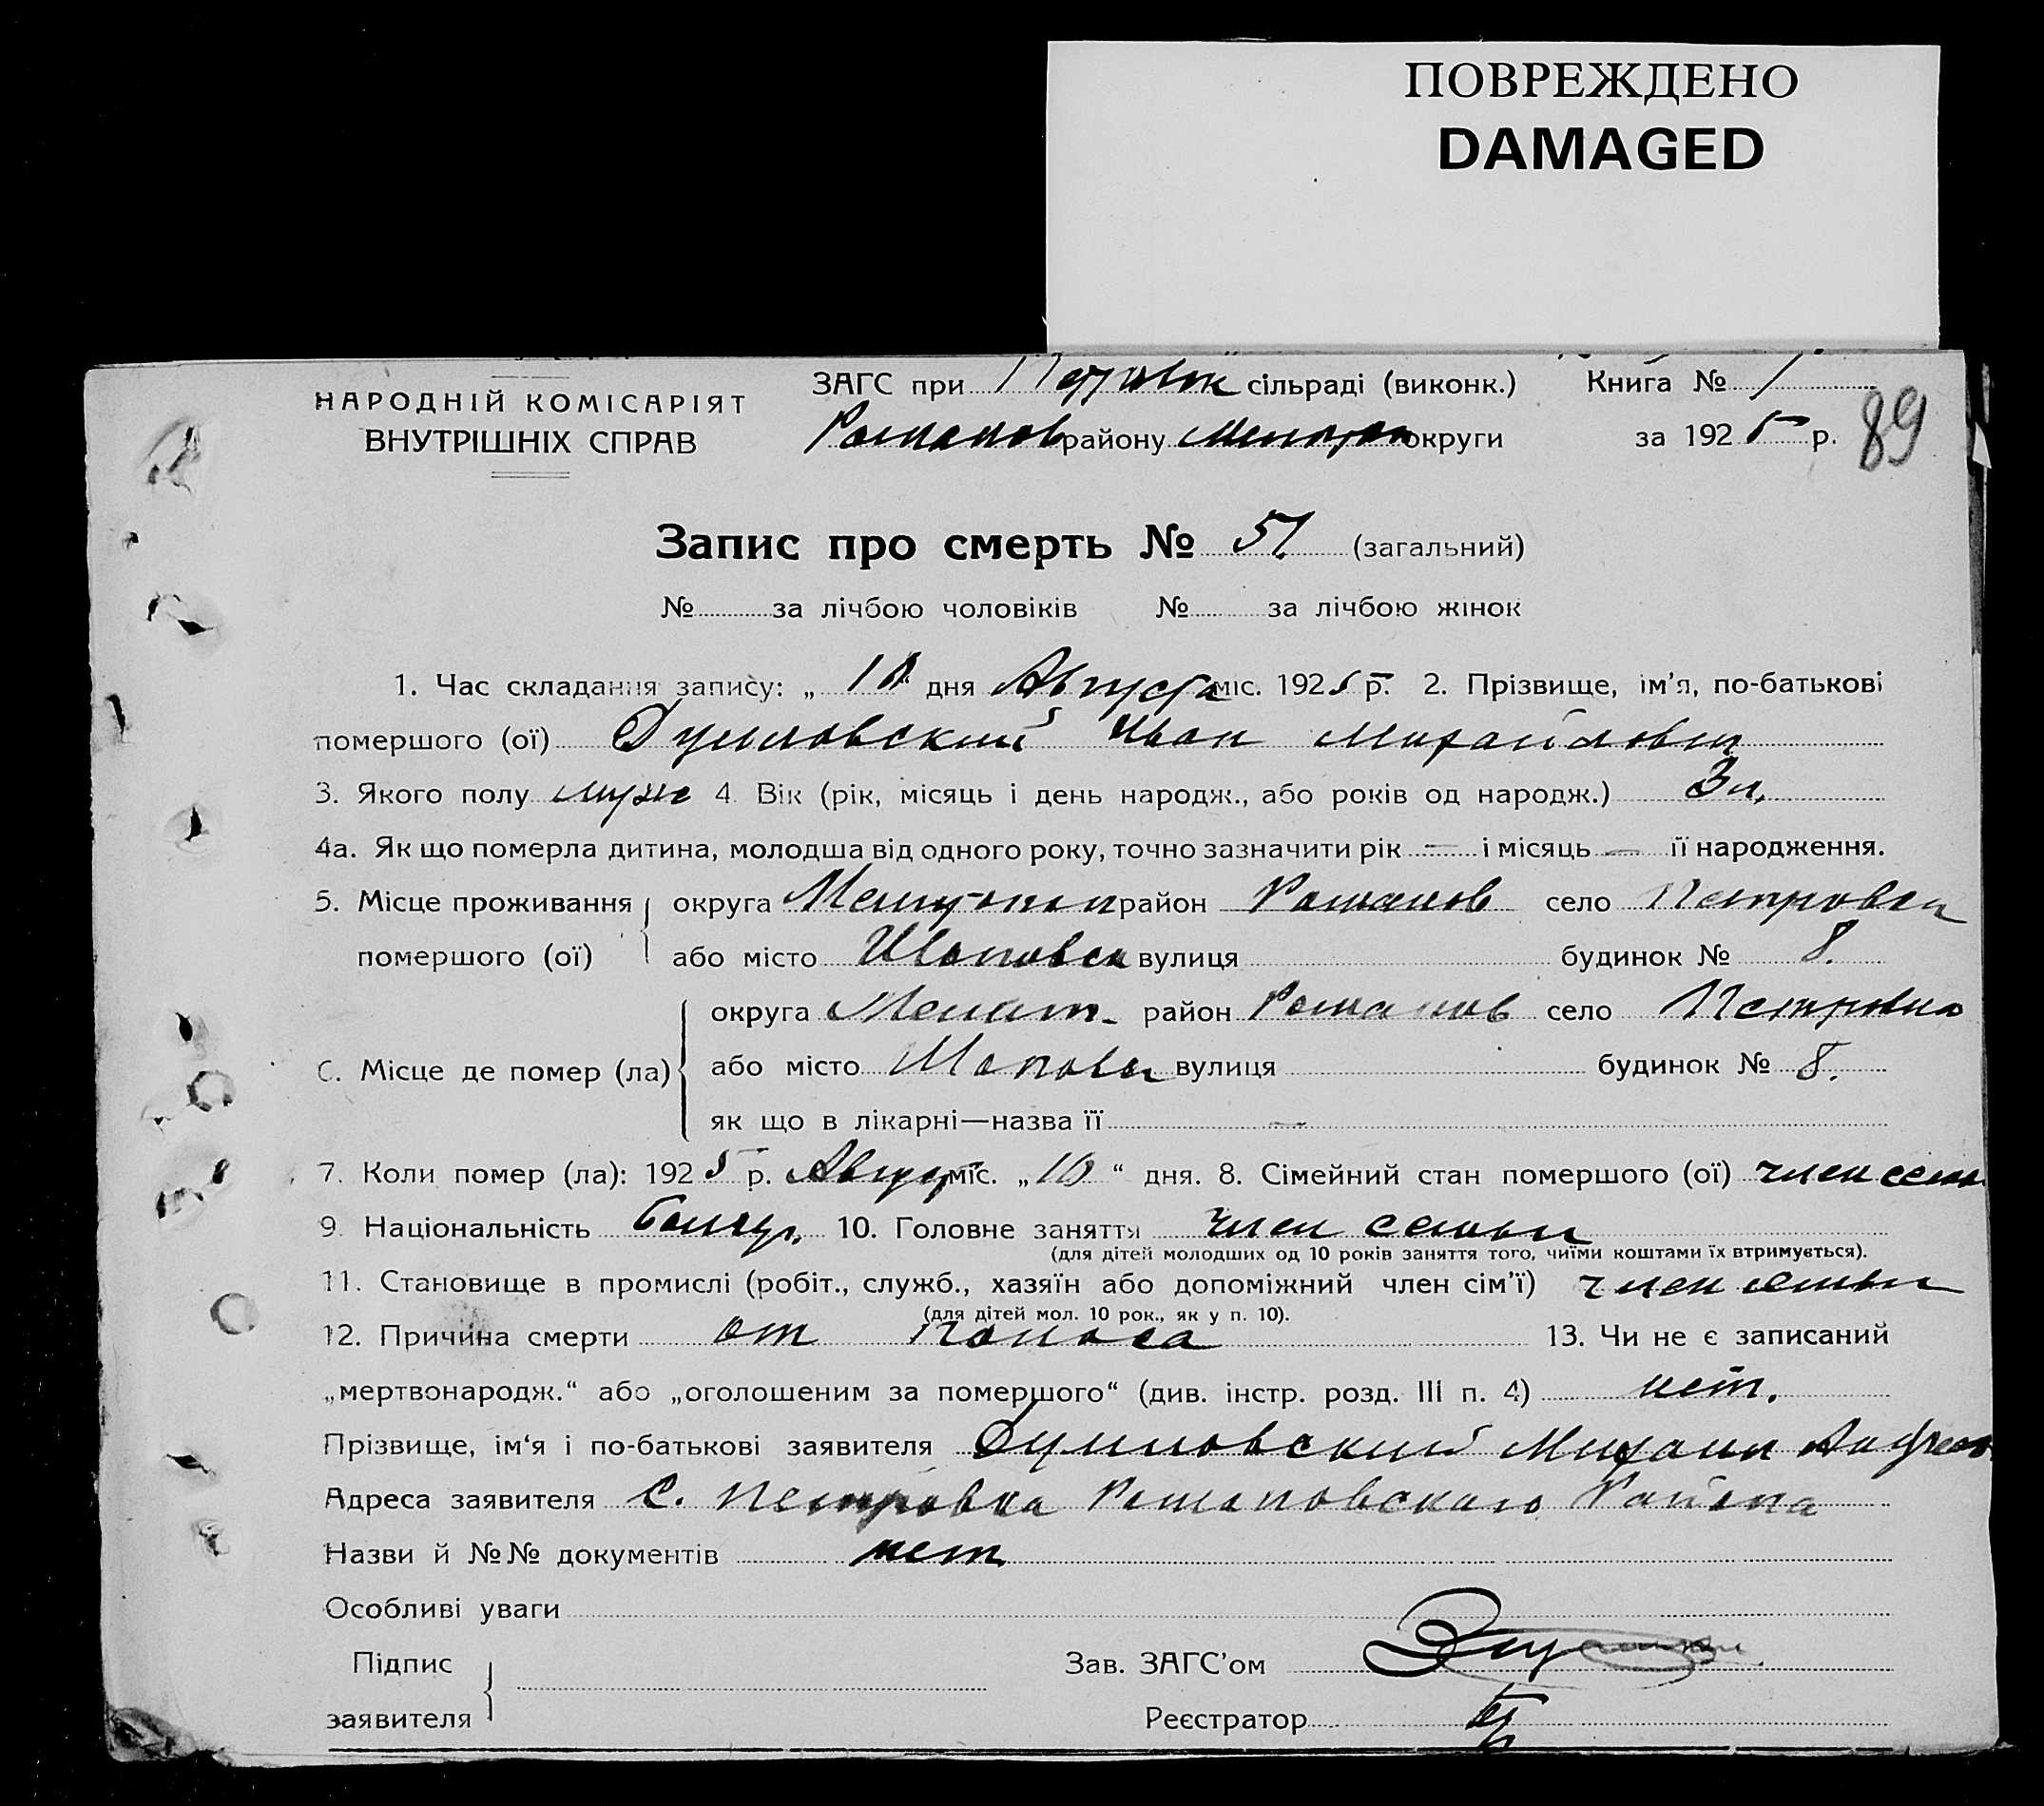 ПОВРЕЖДЕНО
DAMAGED
НАРОДНІЙ КОМІСАРІЯТ
ВНУТРІШНІХ СПРАВ
ЗАГС при Петровск сільраді (виконк.) Книга № 1
Романов району Мелитоп округи за 1925 р.
89
Запис про смерть № 51 (загальний)
№ за лічбою чоловіків № за лічбою жінок
1. Час складання запису: „10" дня Августа міс. 1925 р. 2. Прізвище, ім'я, по-батькові
помершого (ої) Иван Михайлович
3. Якого полу муж 4 Вік (рік, місяць і день народж., або років од народж.) 3 л.
4а. Як що померла дитина, молодша від одного року, точно зазначити рік — і місяць — її народження.
5. Місце проживання округа Мелитопол район Романов село Петровка
помершого (ої) або місто вулиця будинок № 8.
округа Мелит. район Романов село Петровка
С. Місце де помер (ла) або місто вулиця будинок № 8.
як що в лікарні—назва її —
7. Коли помер (ла): 1925 р. Август міс. „10“ дня. 8. Сімейний стан помершого (ої) член семи
9. Національність болгар. 10. Головне заняття член семьи
(для дітей молодших од 10 років заняття того, чиїми коштами їх втримується).
11. Становище в промислі (робіт., служб., хазяїн або допоміжний член сім'ї) член семьи
(для дітей мол. 10 рок., як у п. 10).
12. Причина смерти от поноса 13. Чи не є записаний
„мертвонародж.“ або „оголошеним за помершого“ (див. інстр. розд. III п. 4) нет.
Прізвище, ім'я і по-батькові заявителя Михаил Андреев
Адреса заявителя С. Петровка Романовского Района
Назви й №№ документів нет
Особливі уваги
Підпис
заявителя
Зав. ЗАГС'ом
Реєстратор